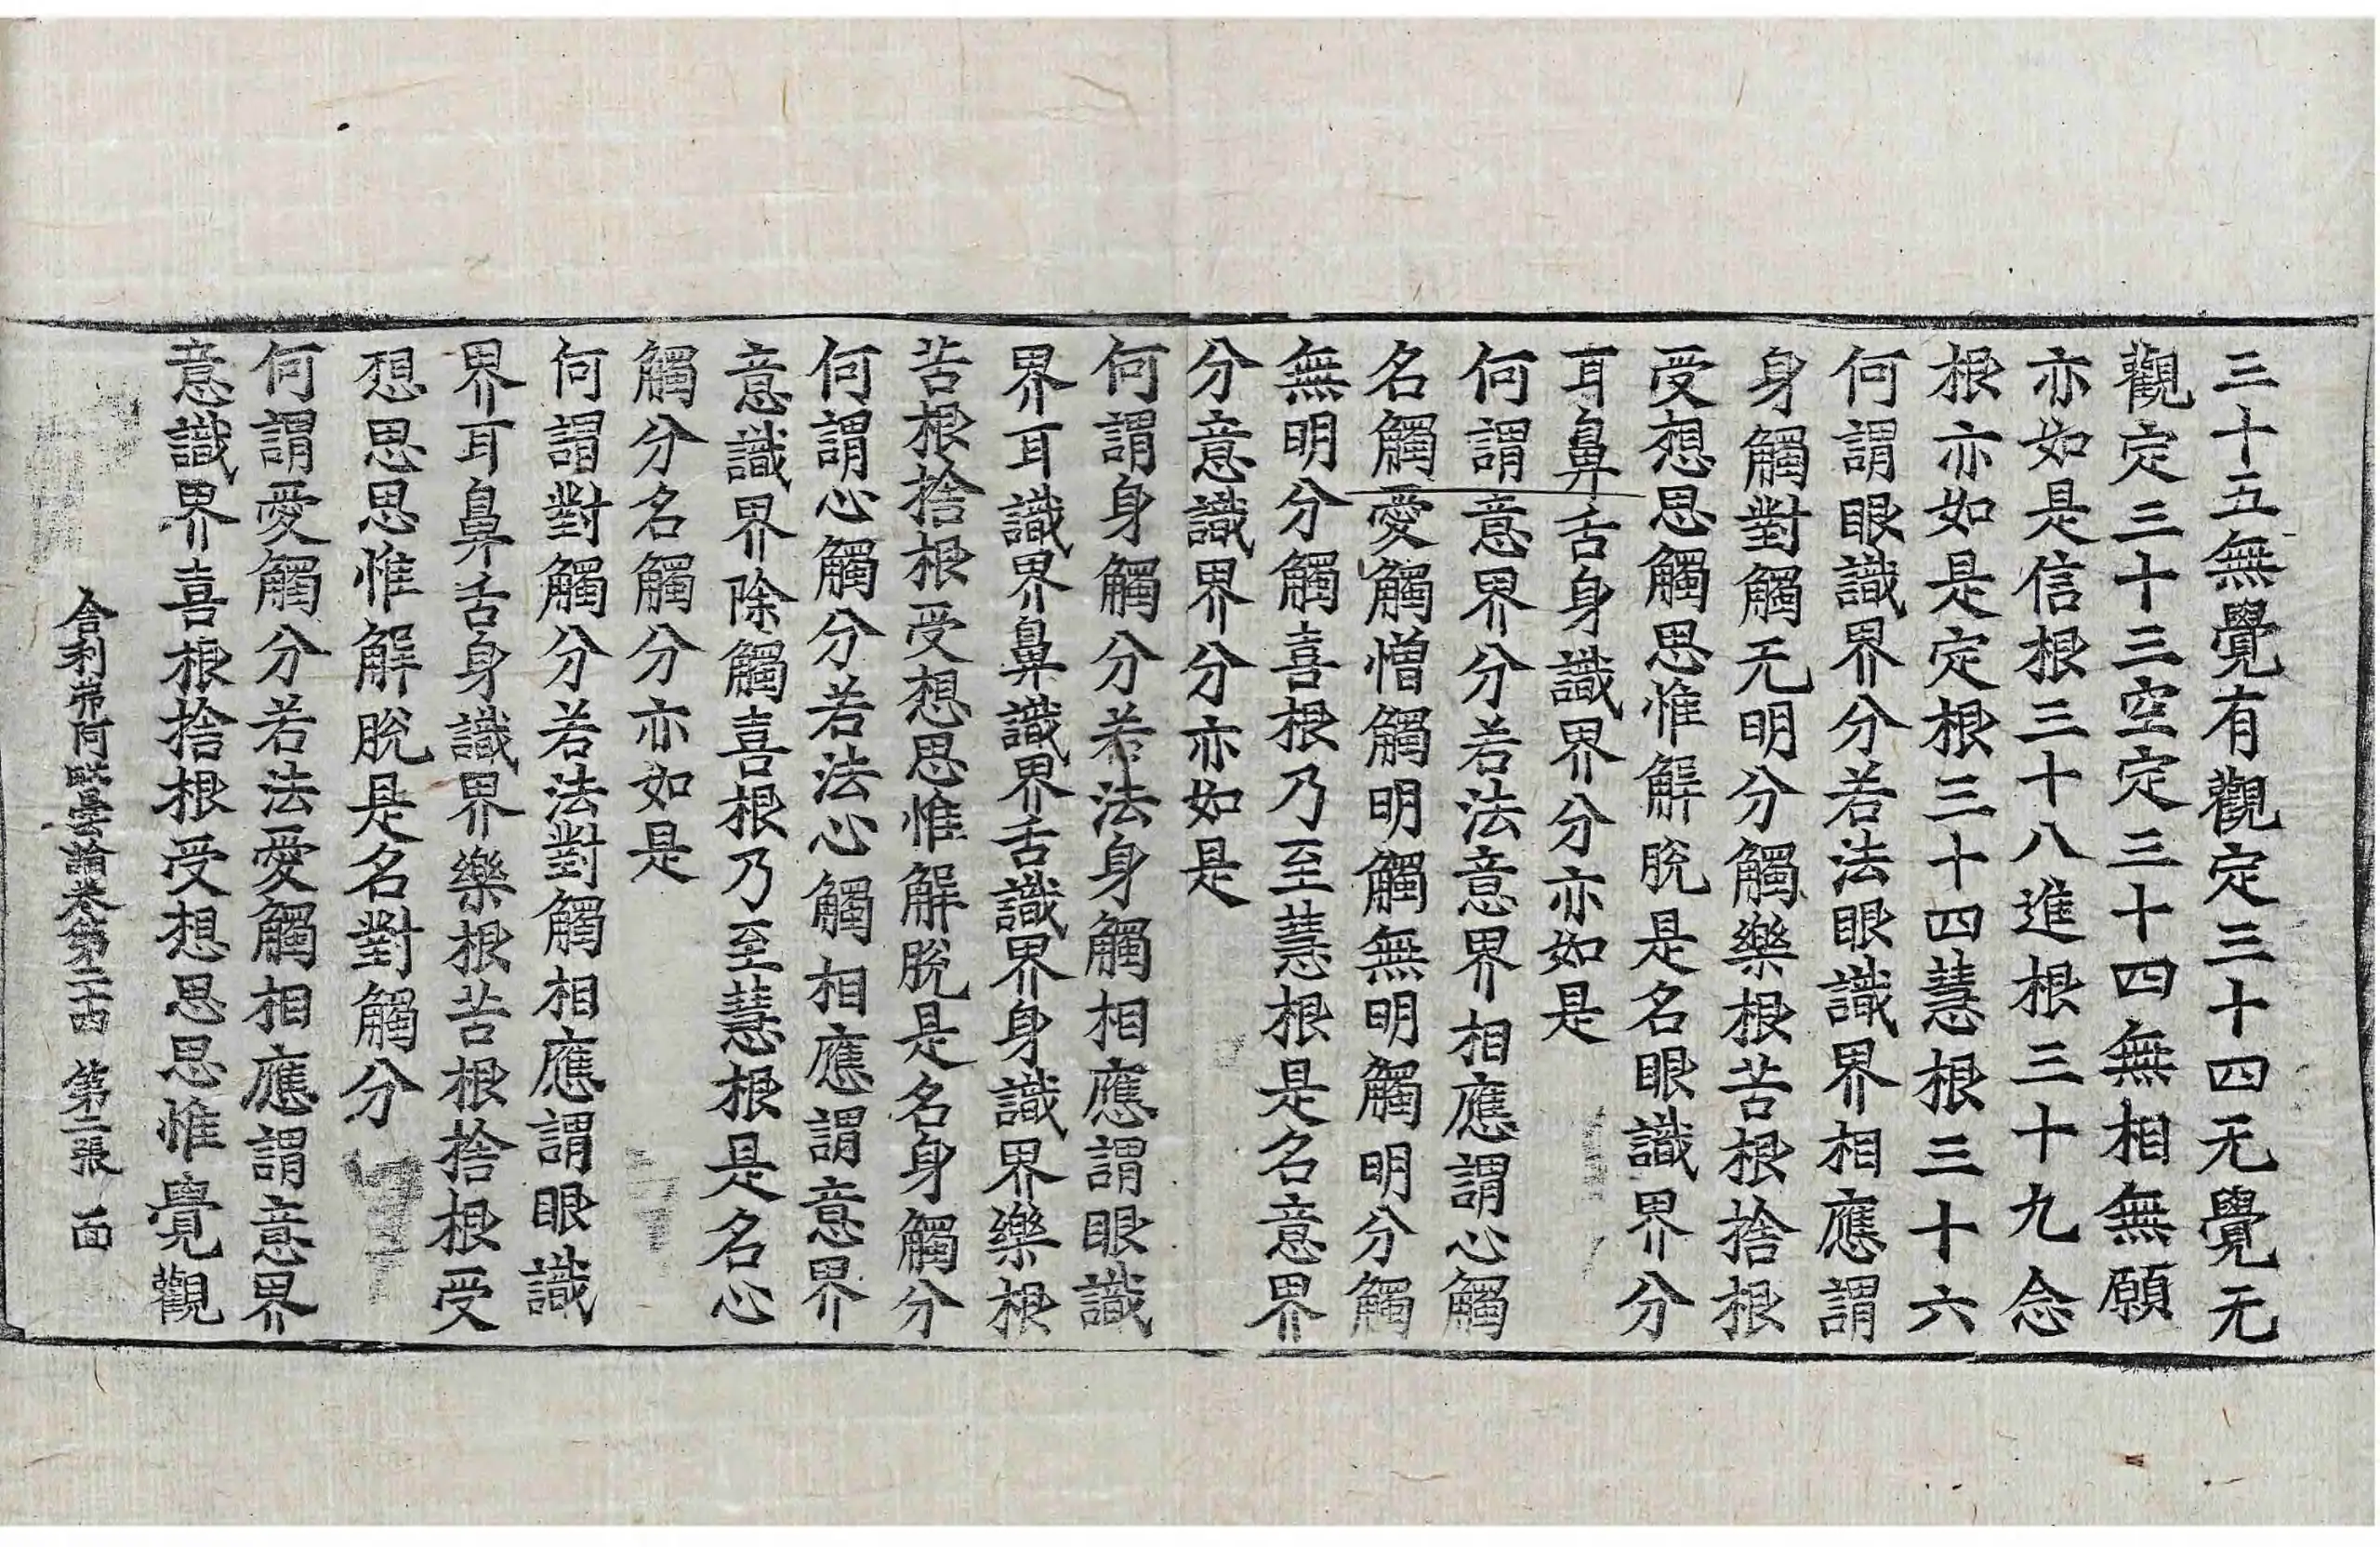 三十五無覺有觀定三十四无覺无
觀定三十三空定三十四無相無願
亦如是信根三十八進根三十九念
根亦如是定根三十四慧根三十六
何謂眼識界分若法眼識界相應謂
身觸對觸无明分觸樂根苦根捨根
受想思觸思惟解脫是名眼識界分
耳鼻舌身識界分亦如是
何謂意界分若法意界相應謂心觸
名觸愛觸憎觸明觸無明觸明分觸
無明分觸喜根乃至慧根是名意界
分意識界分亦如是
何謂身觸分若法身觸相應謂眼識
界耳識界鼻識界舌識界身識界樂根
苦根捨根受想思惟解脫是名身觸分
何謂心觸分若法心觸相應謂意界
意識界除觸喜根乃至慧根是名心
觸分名觸分亦如是
何謂對觸分若法對觸相應謂眼識
界耳鼻舌身識界樂根苦根捨根受
想思思惟解脫是名對觸分
何謂愛觸分若法愛觸相應謂意界
意識界喜根捨根受想思思惟覺觀
舍利弗阿毗曇論卷第二十四　第二張　面